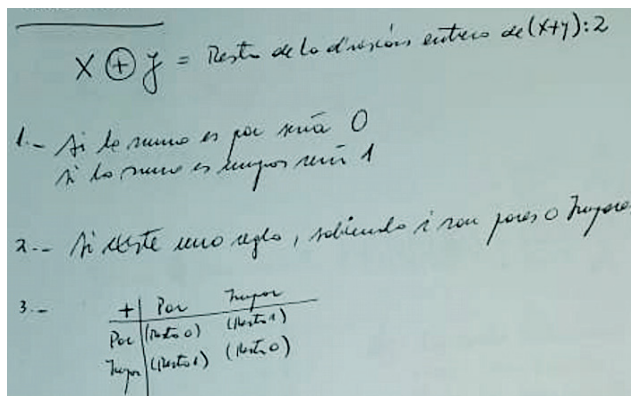 X ⊕ y = Resto de la división entera de (x+y):2
1.- Si la suma es par será 0
Si la suma es impar será 1
2.- Si existe una regla, sabiendo si son pares o Impares
3.- + | Par Impar
Par | (Resto 0) (Resto 1)
Impar | (Resto 1) (Resto 0)